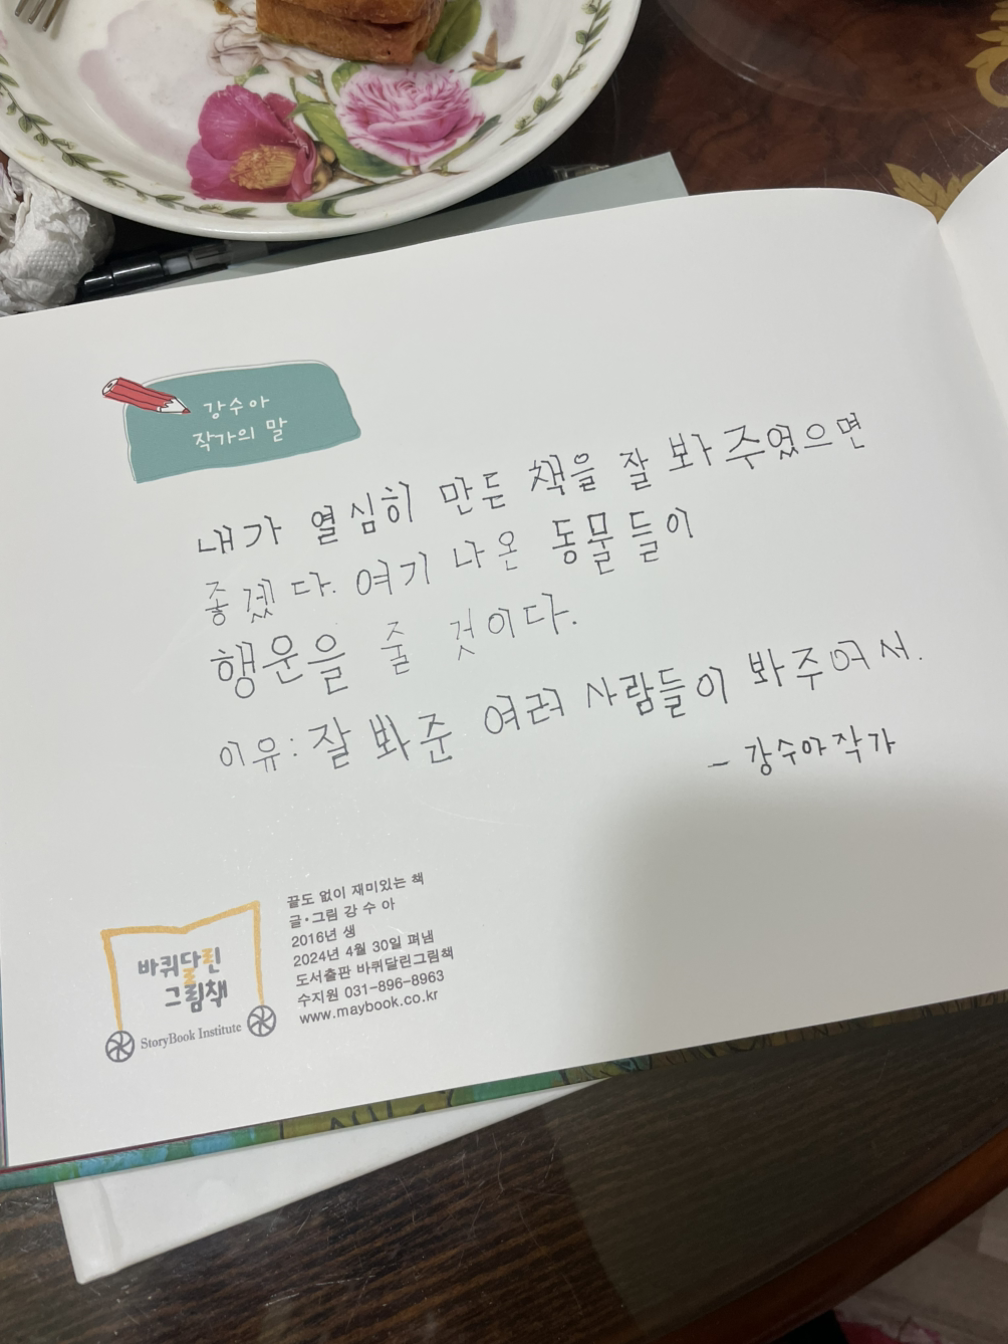 강수아
작가의 말
내가 열심히 만든 책을 잘 봐 주었으면
좋겠다. 여기 나온 동물들이
행운을 줄 것이다.
이유: 잘 봐 준 여러 사람들이 봐주어서.
- 강수아작가
바퀴달린
그림책
StoryBook Institute
끝도 없이 재미있는 책
글·그림 강 수 아
2016년 생
2024년 4월 30일 펴냄
도서출판 바퀴달린그림책
수지원 031-896-8963
www.maybook.co.kr